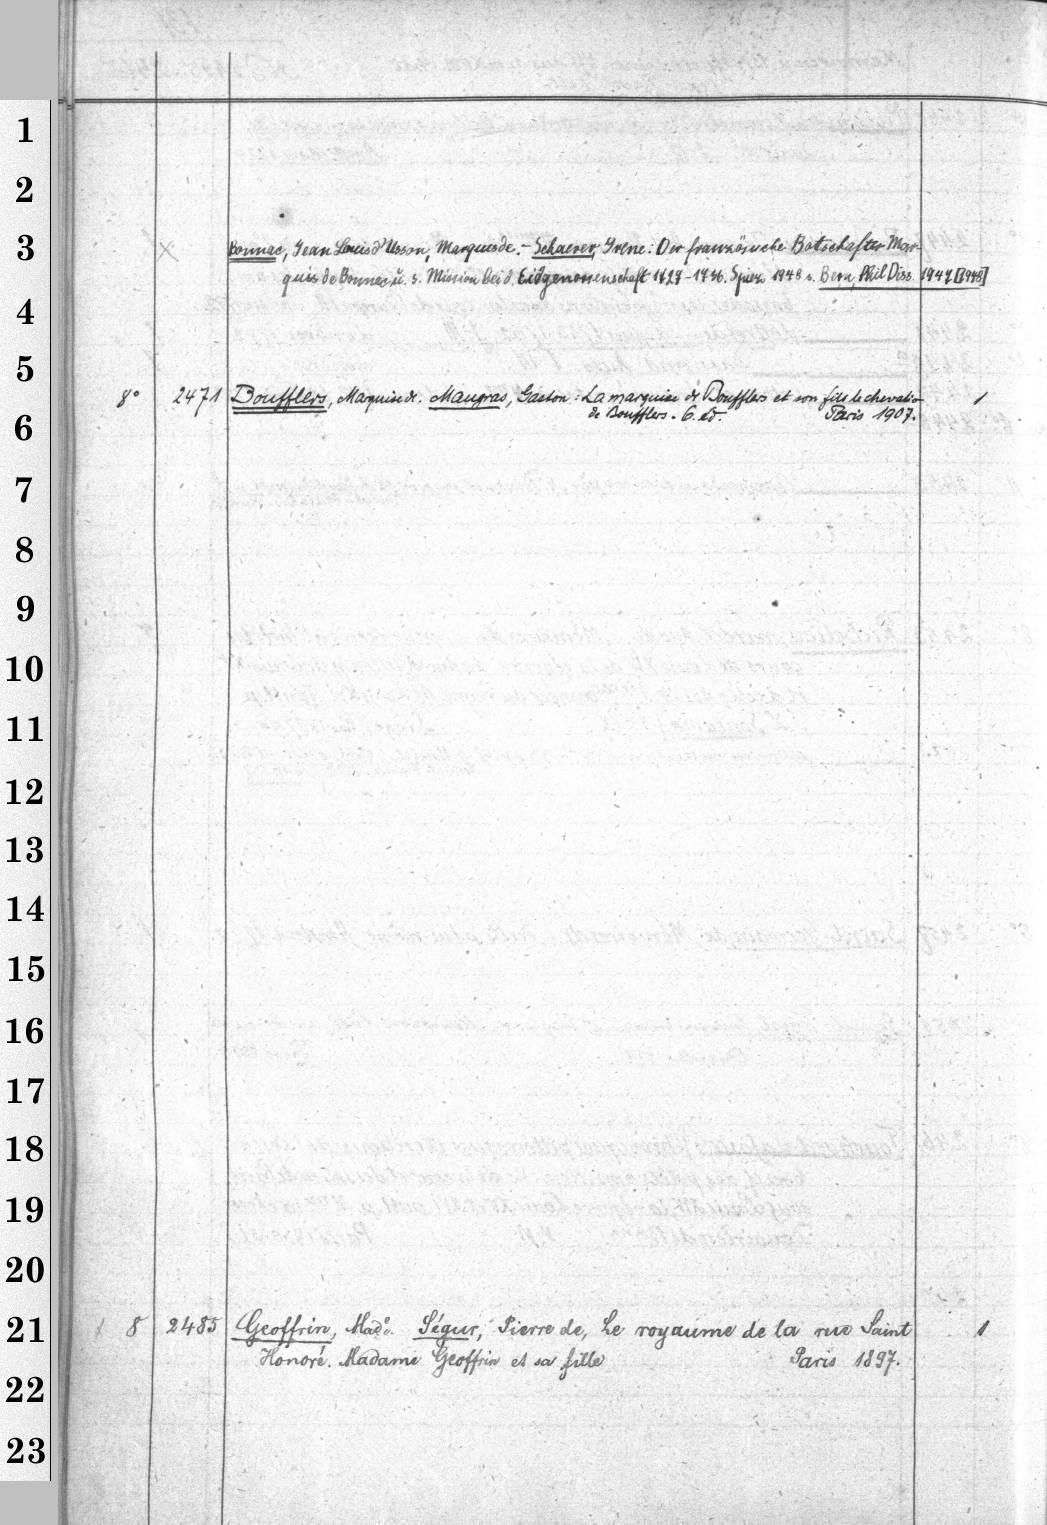 1
2
3
× Bonnac, Jean Louis d'Usson, Marquis de. - Schaerer, Irene: Der französische Botschafter Mar-
quis de Bonnac u. s. Mission bei d. Eidgenossenschaft 1727-1736. Spiez 1948 s. Bern, Phil Diss. 1947 [1948]
4
5
8° 2471 Boufflers, Marquise de. Maugras, Gaston: La marquise de Boufflers et son fils le chevalier 1
de Boufflers. 6. éd. Paris 1907.
6
7
8
9
10
11
12
13
14
15
16
17
18
19
20
21
8 2485 Geoffrin, Made. Ségur, Pierre de, Le royaume de la rue Saint 1
Honoré. Madame Geoffrin et sa fille Paris 1897.
22
23